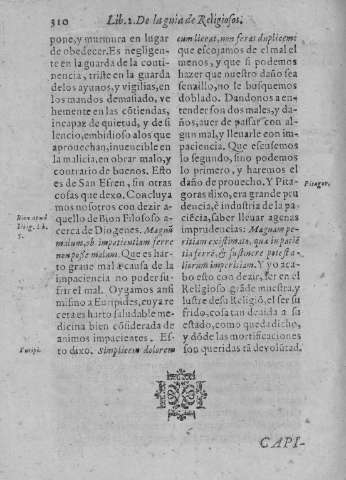 310 Lib. 2. De la guia de Religiosos.
pone, y murmura en lugar
de obedecer. Es negligen-
te en la guarda de la conti
nencia, triste en la guarda
de los ayunos, y vigilias, en
los mandos demasiado, ve-
hemente en las cõtiendas,
incapaz de quietud, y de si
lencio, embidioso a los que
aprouechan, inuencible en
la malicia, en obrar malo, y
contrario de buenos. Esto
es de San Efren, sin otras
cosas que dexo. Concluya
mos nosotros con dezir a-
quello de Bion Filosofo a-
cerca de Diogenes. Magnũ
malum, ob impatientiam ferre
non posse malum. Que es har-
to graue mal a causa de la
impaciencia no poder su-
frir el mal. Oygamos ansi
mismo a Euripides, cuya re
ceta es harto saludable me-
dicina bien cõsiderada de
animos impacientes. Es-
to dixo. Simplicem dolorem
Bion apud
Diog. l.
Euripi.
cum liceat, non feras duplicem:
que escojamos de el mal el
menos, y que si podemos
hazer que nuestro daño sea
senzillo, no le busquemos
doblado. Dandonos a en-
tender son dos males, y da-
ños, auer de passar con al-
gun mal, y lleuarle con im-
paciencia. Que escusemos
lo segundo, sino podemos
lo primero, y haremos el
daño de prouecho. Y Pita-
goras dixo, era grande pru
dencia, è industria de la pa-
ciẽcia, saber lleuar agenas
imprudencias: Magnam pe-
ritiam existimate, qua inpaciẽ
tia ferrè, & sustinere potest a-
liorum imperitiam. Y yo aca-
bo esto con dezir, ser en el
Religioso grãde muestra, y
lustre de su Religiõ, el ser su
frido, cosa tan deuida a su
estado, como queda dicho,
y dõde las mortificaciones
son queridas tã de volũtad.
Pitagor.
CAPI-